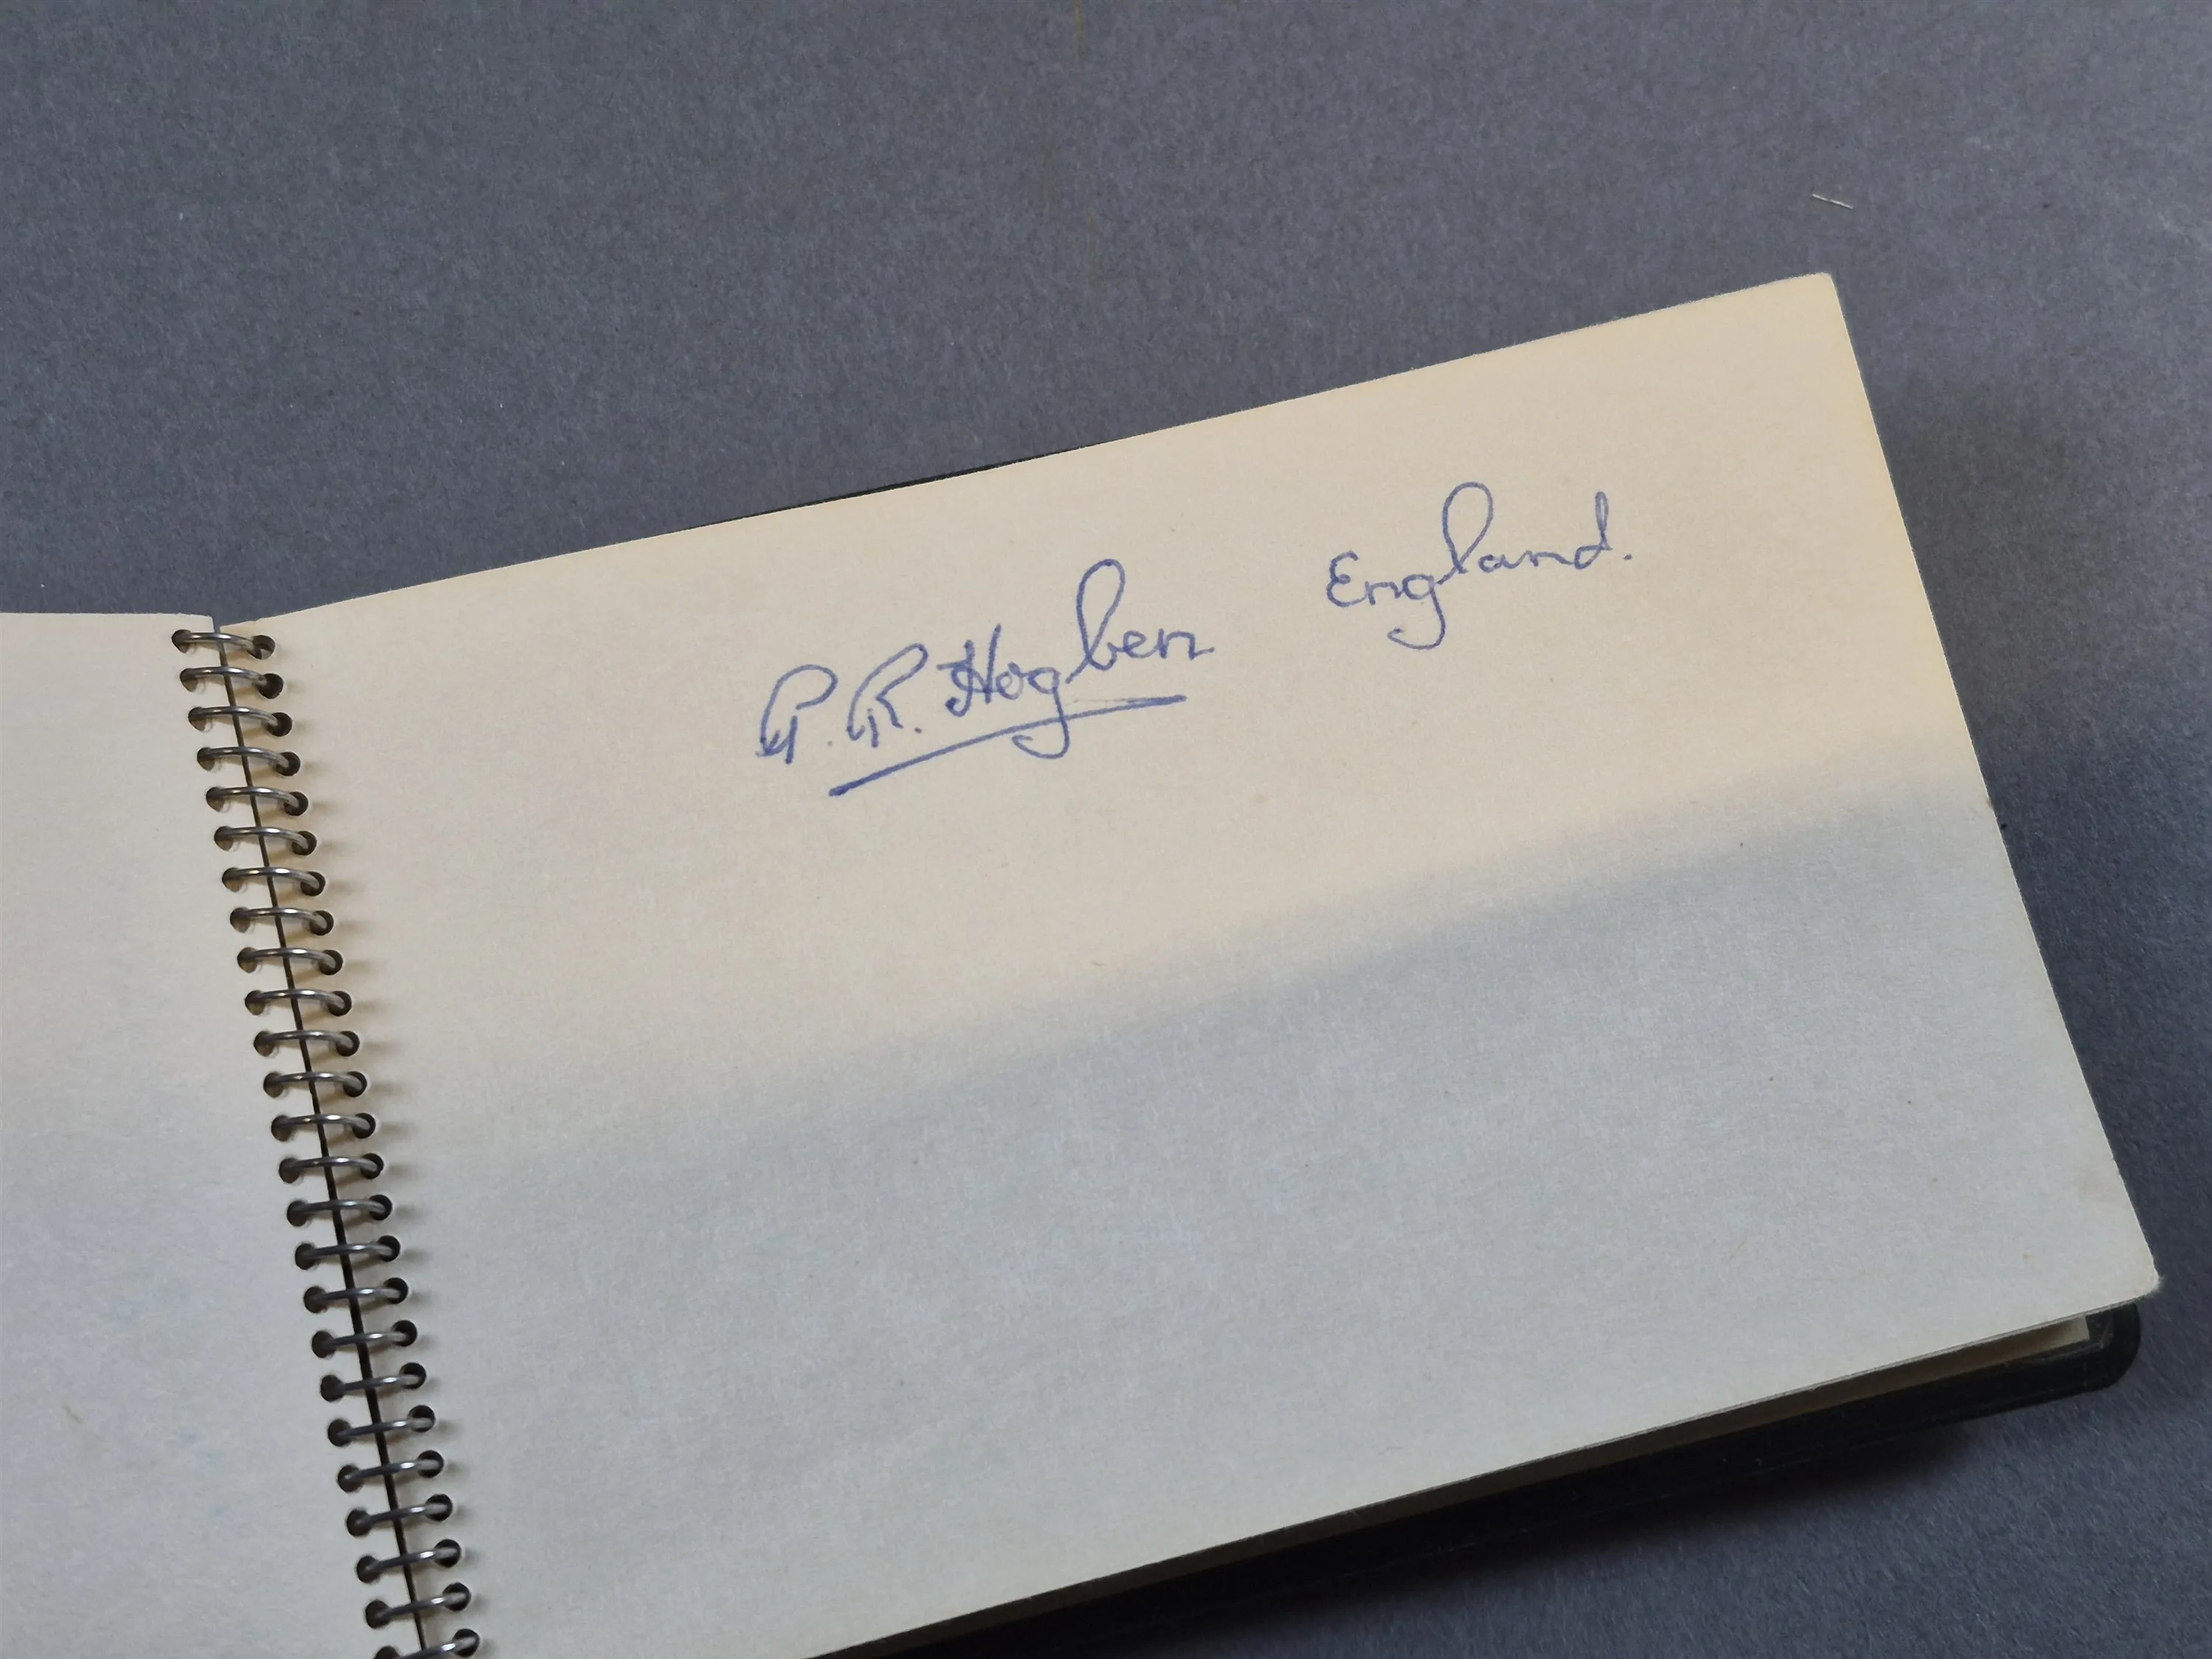 P. R. Hogben England.